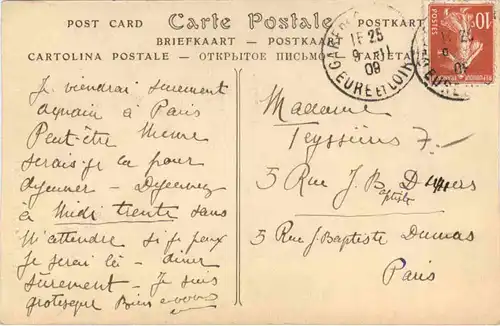 POST CARD Carte Postale POSTKART
BRIEFKAART — POSTKAA
CARTOLINA POSTALE — ОТКРЫТОЕ ПИСЬМО TARJETA
GARE DE
11 25
9 - 11
09
EURE ET LOIR
POSTES
10
Je viendrai surement
demain à Paris
Peut-être même
serais-je là pour
déjeuner — Déjeunez
à Midi trente sans
m'attendre si je peux
je serai là — diner
sûrement — Je suis
grotesque Bien à vous
Madame
Teyssier 7.
5 Rue J. Baptiste Dumas
5 Rue J. Baptiste Dumas
Paris